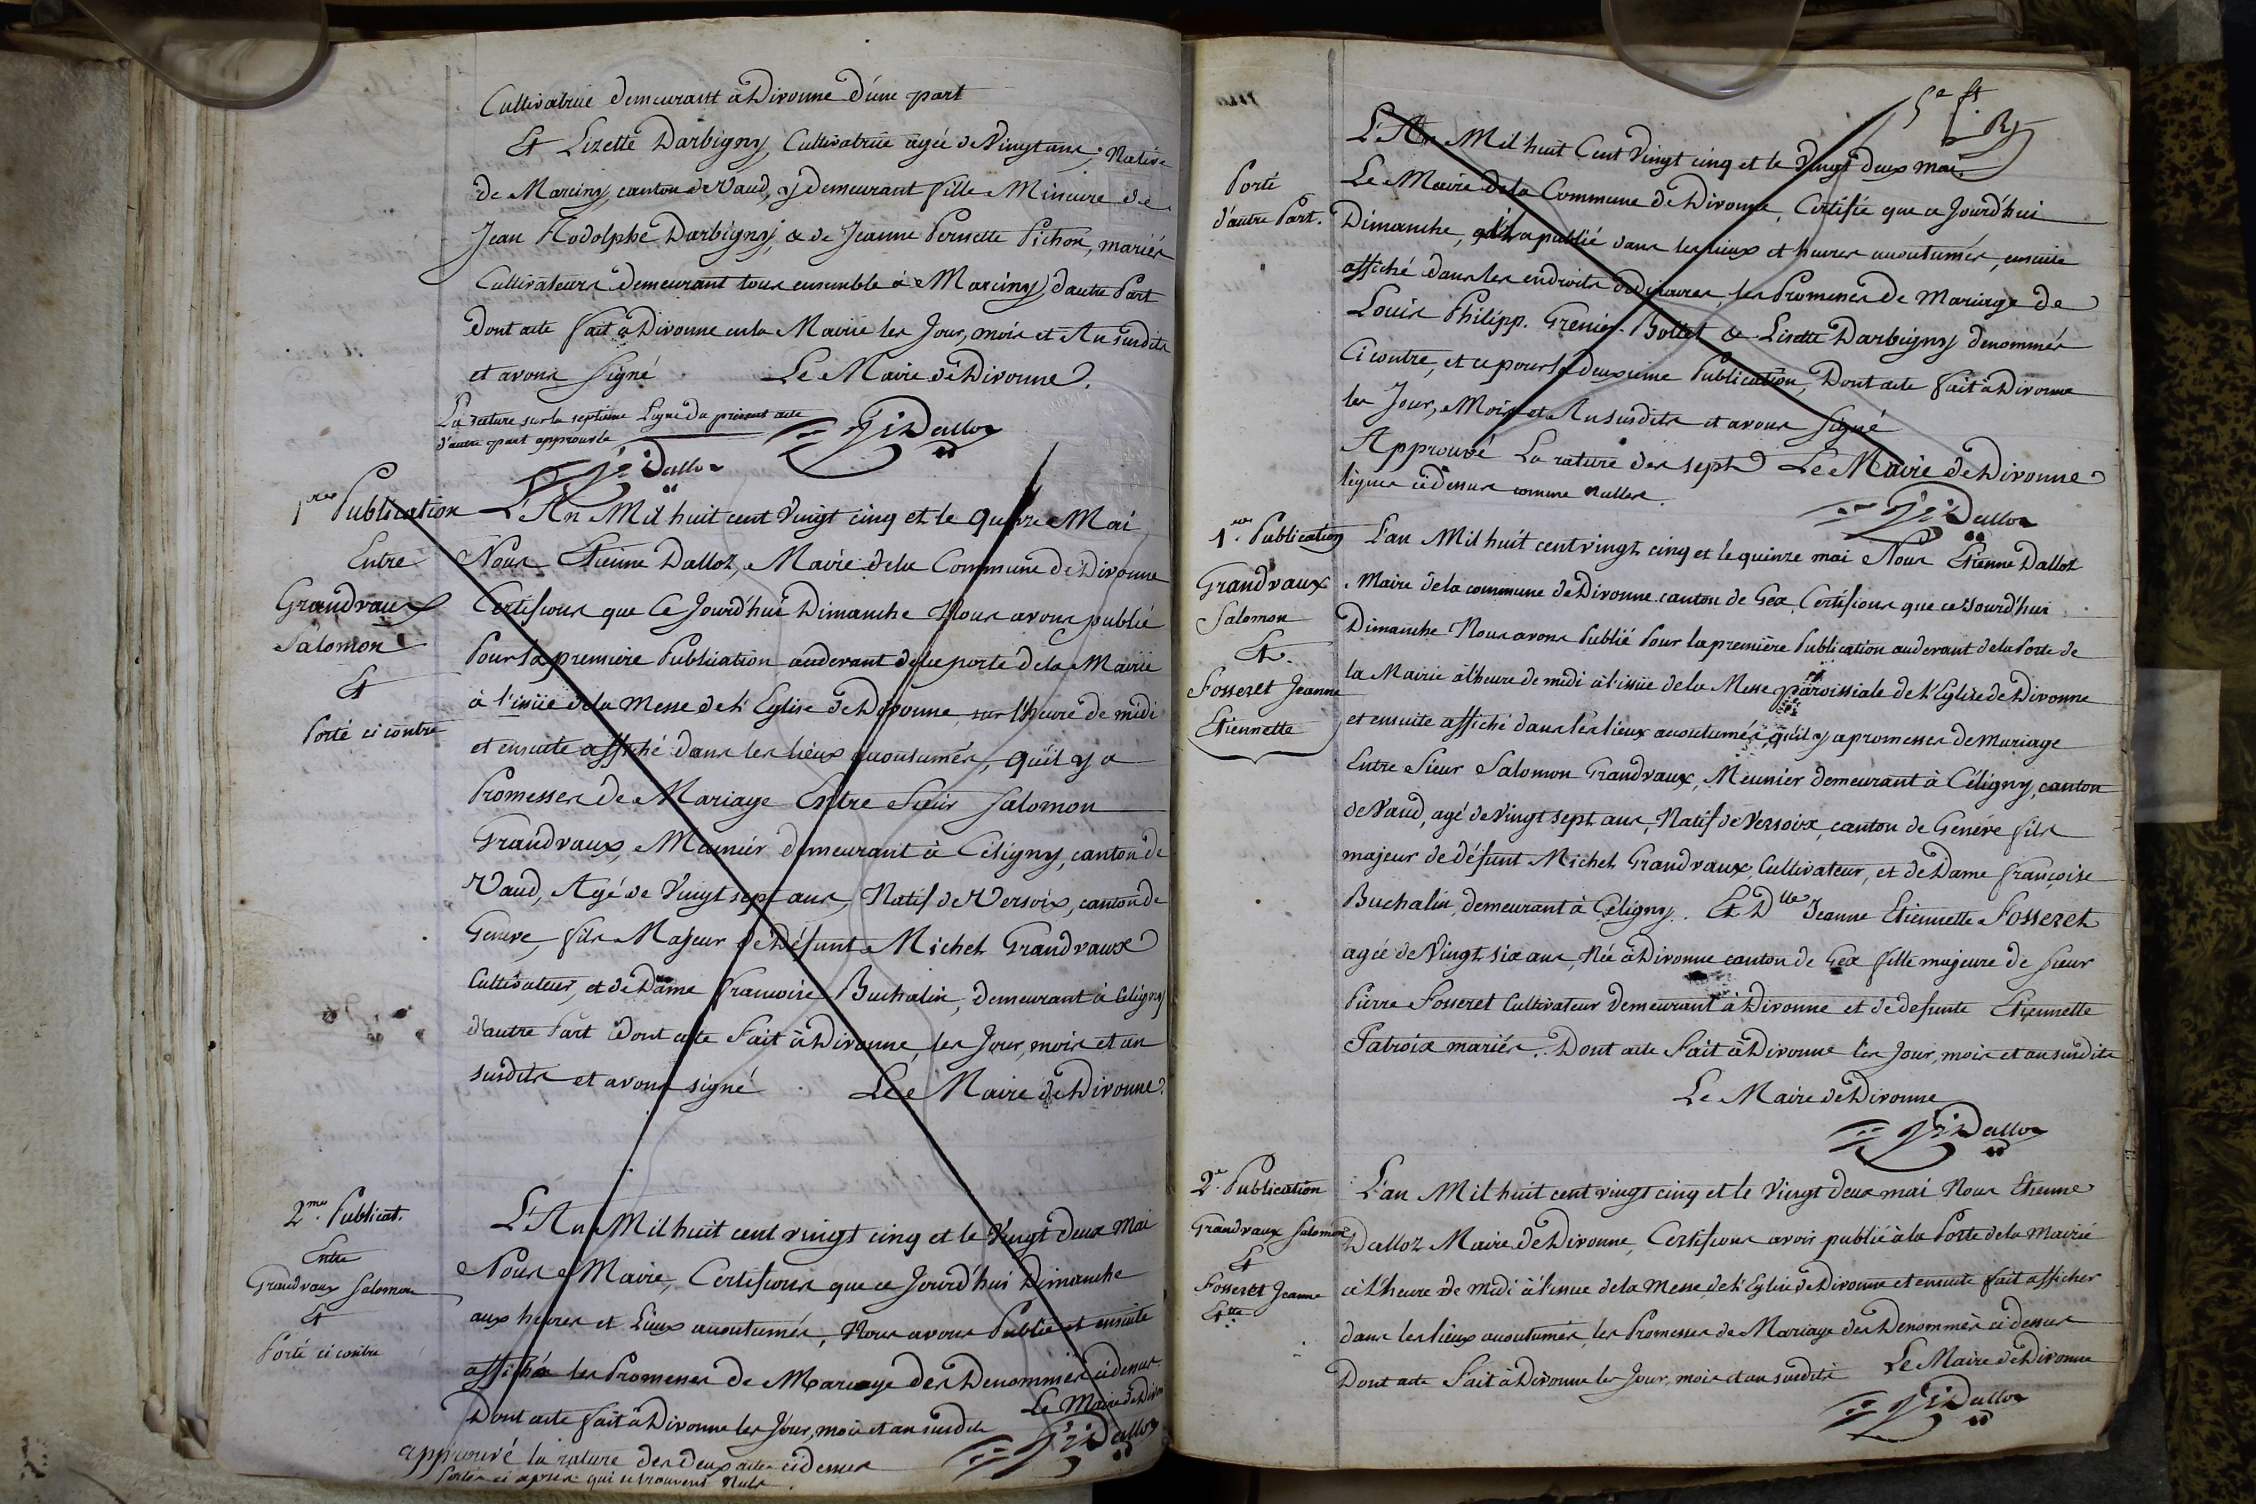 Cultivatrice demeurant à Divonne d'une part
Et Lizette Darbigny, Cultivatrice agée de Vingt ans, Native
de Marciny, canton de Vaud, y demeurant fille Mineure de
Jean Rodolphe Darbigny, & de Jeanne Pernette Pichon, mariés
Cultivateurs demeurant tous ensemble à Marciny, d'autre Part
dont acte fait à Divonne en la Mairie les Jour, mois et An susdits
et avons signé Le Maire de Divonne.
La rature sur la septieme Ligne du présent acte
d'autre part approuvée
Dalloz
Dalloz
1ere Publication
Entre
Grandvaux
Salomon
Et
Porté ci contre
L'An Mil huit cent Vingt cinq et le Quinze Mai
Nous Etienne Dalloz, Maire de la Commune de Divonne
Certifions que Ce Jourd'hui Dimanche Nous avons publié
Pour la premiere Publication audevant de la porte de la Mairie
à l'issüe de la Messe de l'Eglise de Divonne, sur l'heure de midi
et ensuite affiché dans les lieux accoutumés, qu'il y a
Promesses de Mariage Entre Sieur Salomon
Grandvaux, Meunier demeurant à Céligny, canton de
Vaud, Agé de Vingt sept ans, Natif de Versoix, canton de
Geneve, fils Majeur de Défunt Michel Grandvaux
Cultivateur, et de Dame Francoise Buchalin, demeurant à Céligny
d'autre Part dont acte Fait à Divonne, les Jour, mois et an
susdits et avons signé Le Maire de Divonne.
2me Publicat.
Entre
Grandvaux Salomon
Et
Porté ci contre
L'An Mil huit cent vingt cinq et le Vingt deux Mai
Nous Maire, Certifions que ce Jourd'hui Dimanche
aux heures et Lieux accoutumés, Nous avons Publié et ensuite
affiché les Promesses de Mariage des Denommés cidessus
Dont acte fait à Divonne les Jour, mois et an susdits Le Maire de Divonne
Dalloz
approuvé la rature des deux actes cidessus
Portés ci après qui se trouvent Nuls.
Porté
d'autre Part.
L'An Mil huit Cent Vingt cinq et le Vingt deux mai
Le Maire de la Commune de Divonne, Certifie que ce Jourd'hui
Dimanche, qu'il a publié dans les lieux et heures accoutumés, ensuite
affiché dans les endroits ordinaires, les Promesses de Mariage de
Louis Philipp. Grenier-Bollet & Lisette Darbigny denommés
Ci contre, et ce pour la deuxieme Publication, Dont acte fait à Divonne
les Jour, Mois et An susdits et avons Signé
Approuvé La rature des sept Le Maire de Divonne
lignes cidessus comme nulles
Dalloz
1ere Publication
Grandvaux
Salomon
Et
Fosseret Jeanne
Etiennette
L'an Mil huit cent vingt cinq et le quinze mai Nous Etienne Dalloz
Maire de la commune de Divonne canton de Gex, Certifions que ce Jourd'hui
Dimanche Nous avons Publié Pour la première Publication audevant de la Porte de
la Mairie à l'heure de midi à l'issüe de la Messe paroissiale de l'Eglise de Divonne
et ensuite affiché dans les lieux accoutumés, qu'il y a promesses de Mariage
Entre Sieur Salomon Grandvaux, Meunier demeurant à Céligny, canton
de Vaud, agé de Vingt sept ans, Natif de Versoix, canton de Genéve fils
majeur de défunt Michel Grandvaux, Cultivateur, et de Dame françoise
Buchalin, demeurant à Céligny. Et Dlle Jeanne Etiennette Fosseret
agée de Vingt six ans, Née à Divonne canton de Gex fille majeure de Sieur
Pierre Fosseret Cultivateur demeurant à Divonne et de defunte Etiennette
Patroix mariés. Dont acte Fait à Divonne les Jour, mois et an susdits
Le Maire de Divonne
Dalloz
2e Publication
Grandvaux Salomon
Et
Fosseret Jeanne
Ettte
L'an Mil huit cent vingt cinq et le Vingt deux mai Nous Etienne
Dalloz Maire de Divonne, Certifions avoir publié à la Porte de la Mairie
à l'heure de midi à l'issue de la Messe de l'Eglise de Divonne et ensuite fait afficher
dans les lieux accoutumés, les Promesses de Mariage des Denommés ci dessus
Dont acte Fait à Divonne les Jour, mois et an susdits Le Maire de Divonne
Dalloz